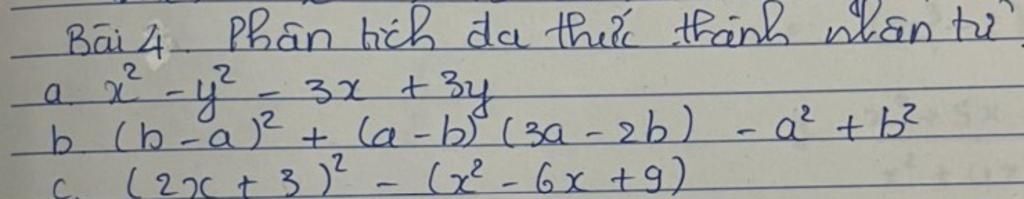 Bài 4. Phân tích đa thức thành nhân tử
a. x² - y² - 3x + 3y
b (b - a)² + (a - b) (3a - 2b) - a² + b²
c. (2x + 3)² - (x² - 6x + 9)